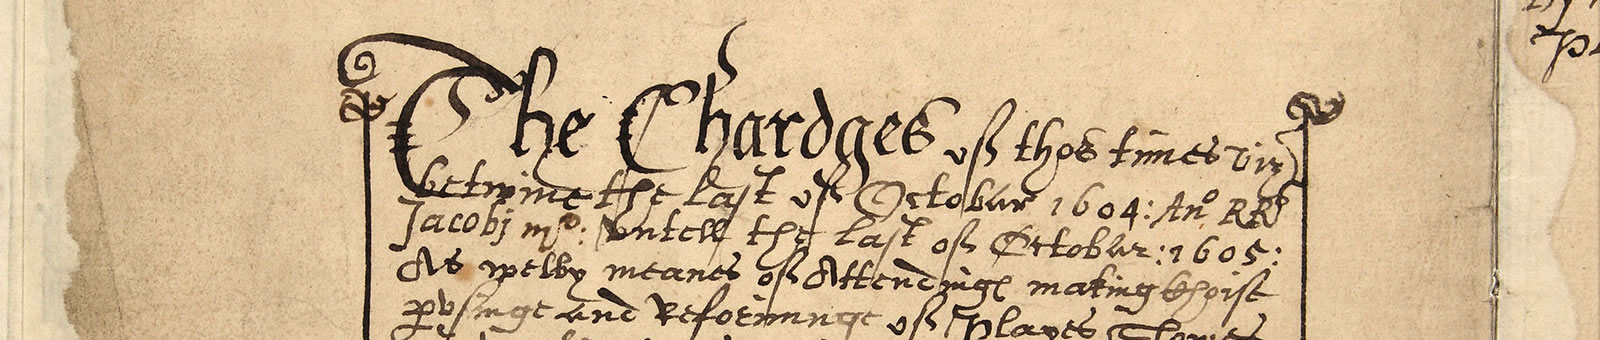 The Chardges of thos times viz
betwine the last of Octobar 1604: Ano RRs
Jacobj mo: vntell the last of Octobar: 1605:
As welby meanes of Attendinge making Choise
pvsinge and Reforminge of Plaies